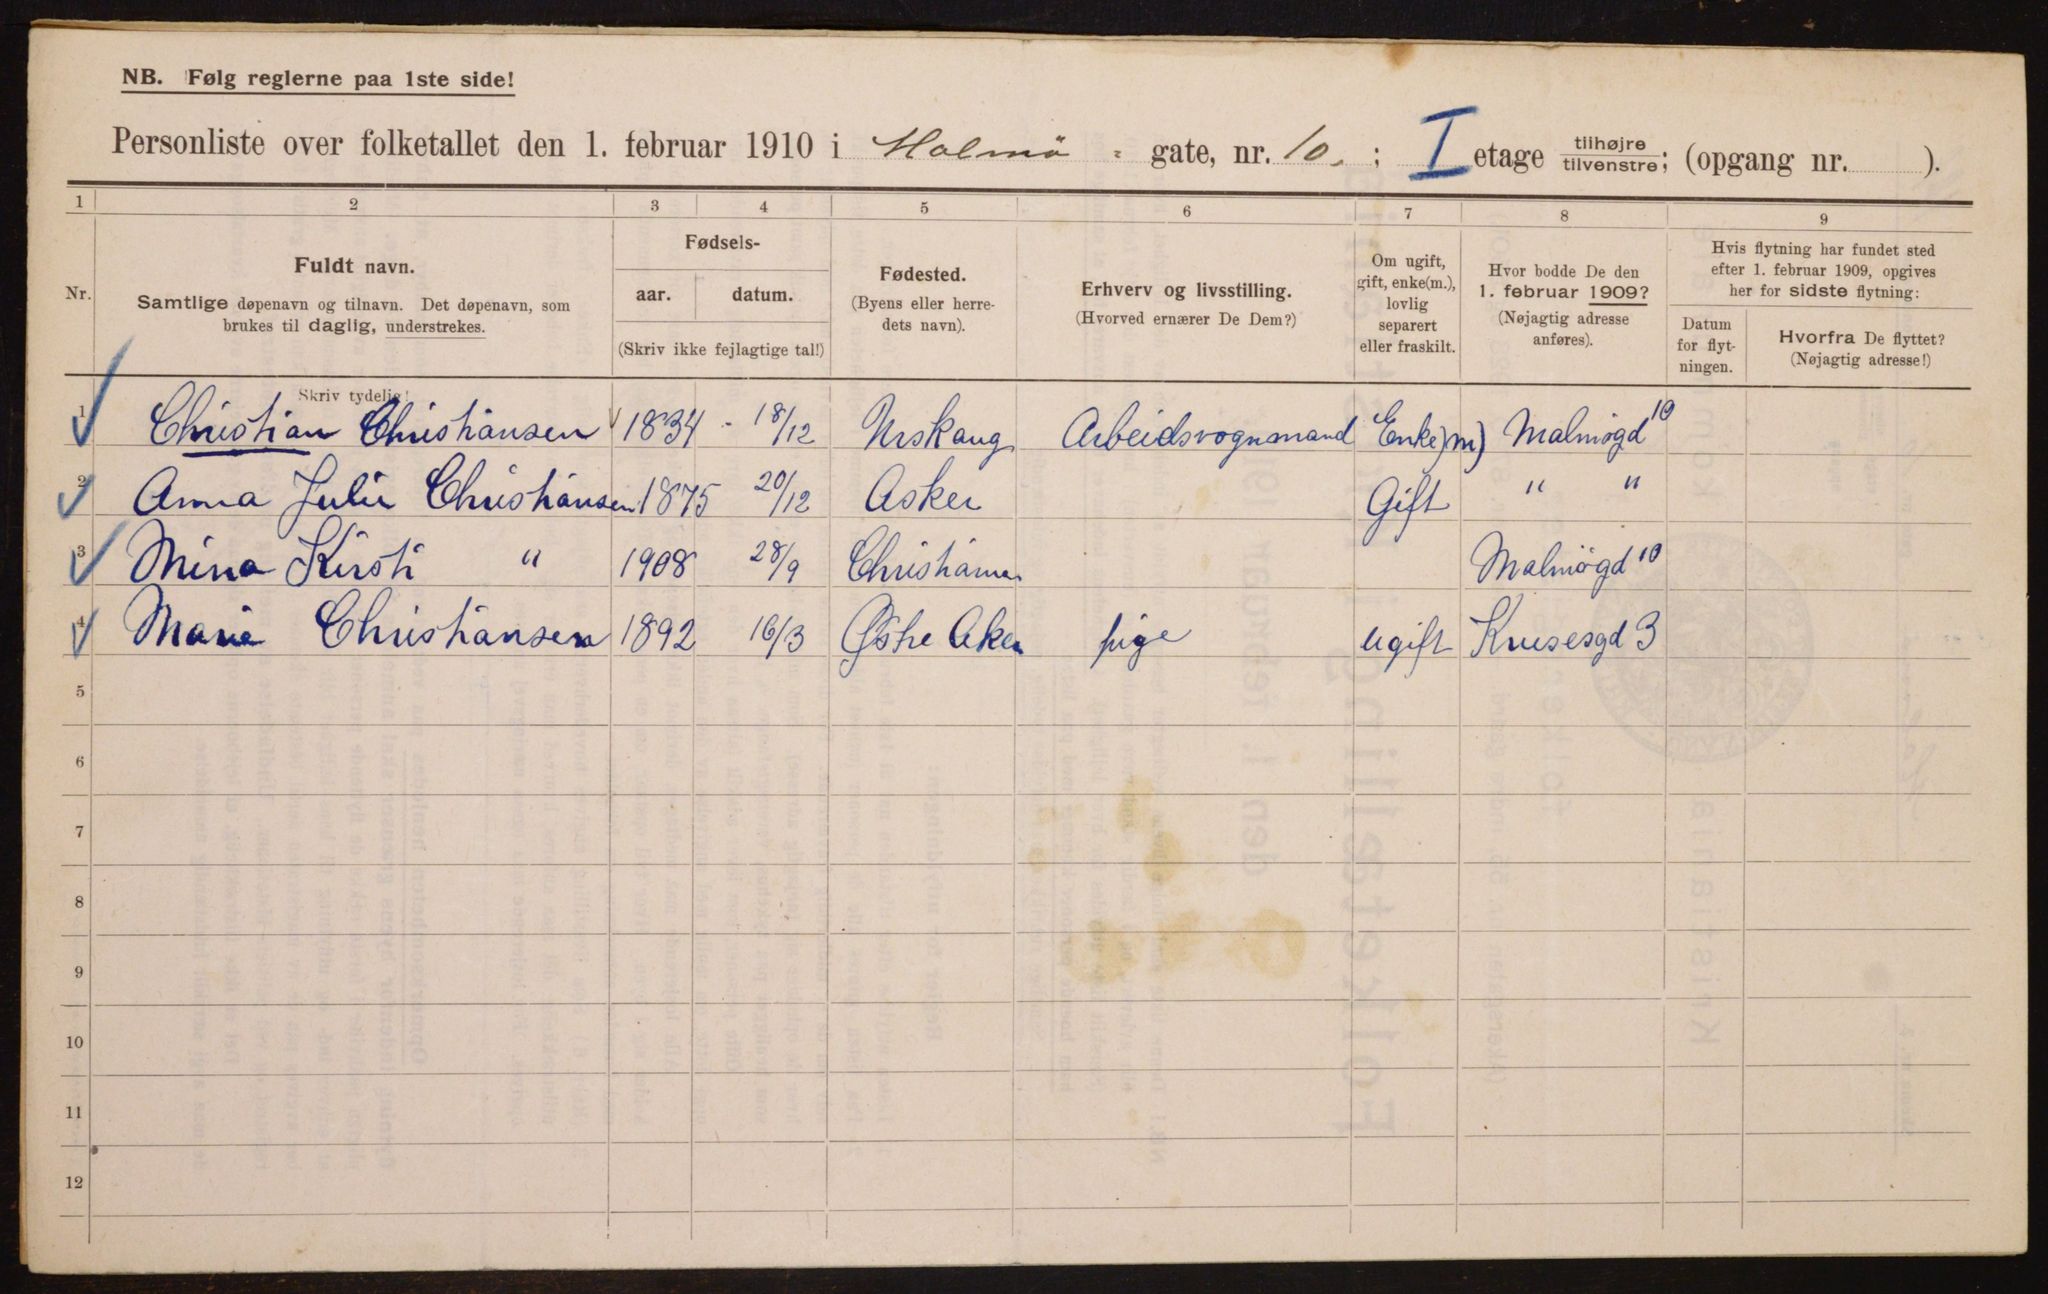 NB. Følg reglerne paa 1ste side!
Personliste over folketallet den 1. februar 1910 i Malmö - gate, nr. 10. ; I etage tilhøjre tilvenstre; (opgang nr. ).
1 2 3 4 5 6 7 8 9
Nr.
Fuldt navn.
Samtlige døpenavn og tilnavn. Det døpenavn, som
brukes til daglig, understrekes.
Fødsels-
aar. datum.
(Skriv ikke fejlagtige tal!)
Fødested.
(Byens eller herre-
dets navn).
Erhverv og livsstilling.
(Hvorved ernærer De Dem?)
Om ugift,
gift, enke(m.),
lovlig
separert
eller fraskilt.
Hvor bodde De den
1. februar 1909?
(Nøjagtig adresse
anføres).
Hvis flytning har fundet sted
efter 1. februar 1909, opgives
her for sidste flytning:
Datum
for flyt-
ningen.
Hvorfra De flyttet?
(Nøjagtig adresse!)
Skriv tydelig!
1 Christian Christiansen 1834 - 18/12 Urskaug Arbeidsvognmand Enke)m) Malmøgd 10
2 Anna Julie Christiansen 1875 20/12 Asker Gift " "
3 Mina Kirsti " 1908 28/9 Christiania Malmøgd 10
4 Marie Christiansen 1892 16/3 Østre Aker pige ugift Krusesgd 3
5
6
7
8
9
10
11
12